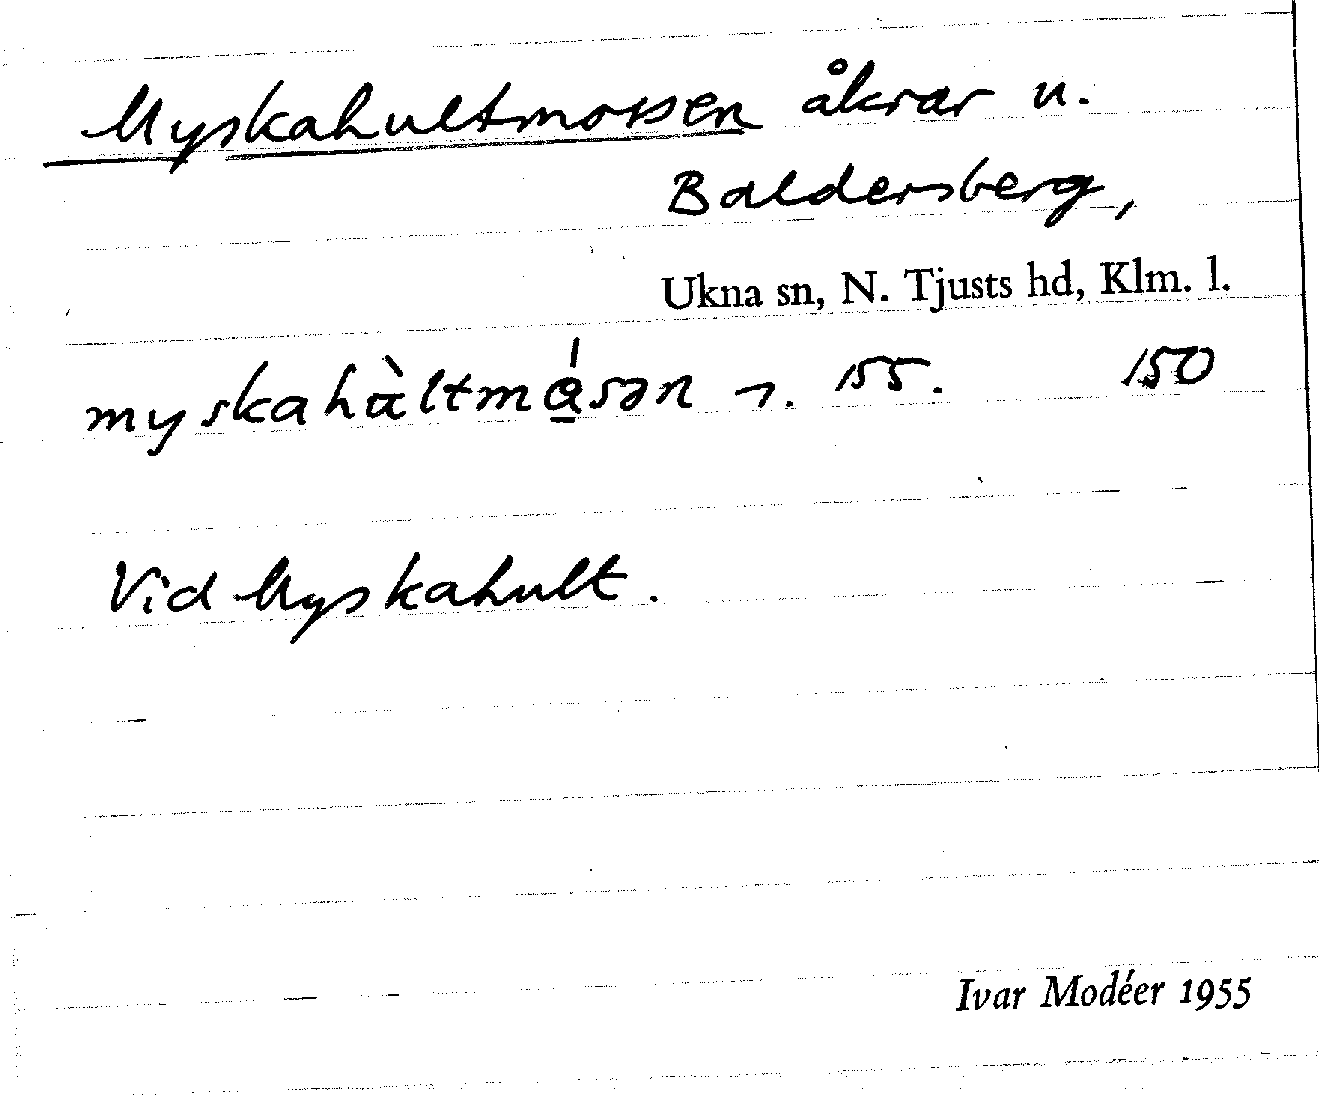 Myskahultmossen åkrar u.
Baldersberg,
Ukna sn, N. Tjusts hd, Klm. l.
myskahàltmásən ¬. 155. 150
Vid Myskahult.
Ivar Modéer 1955